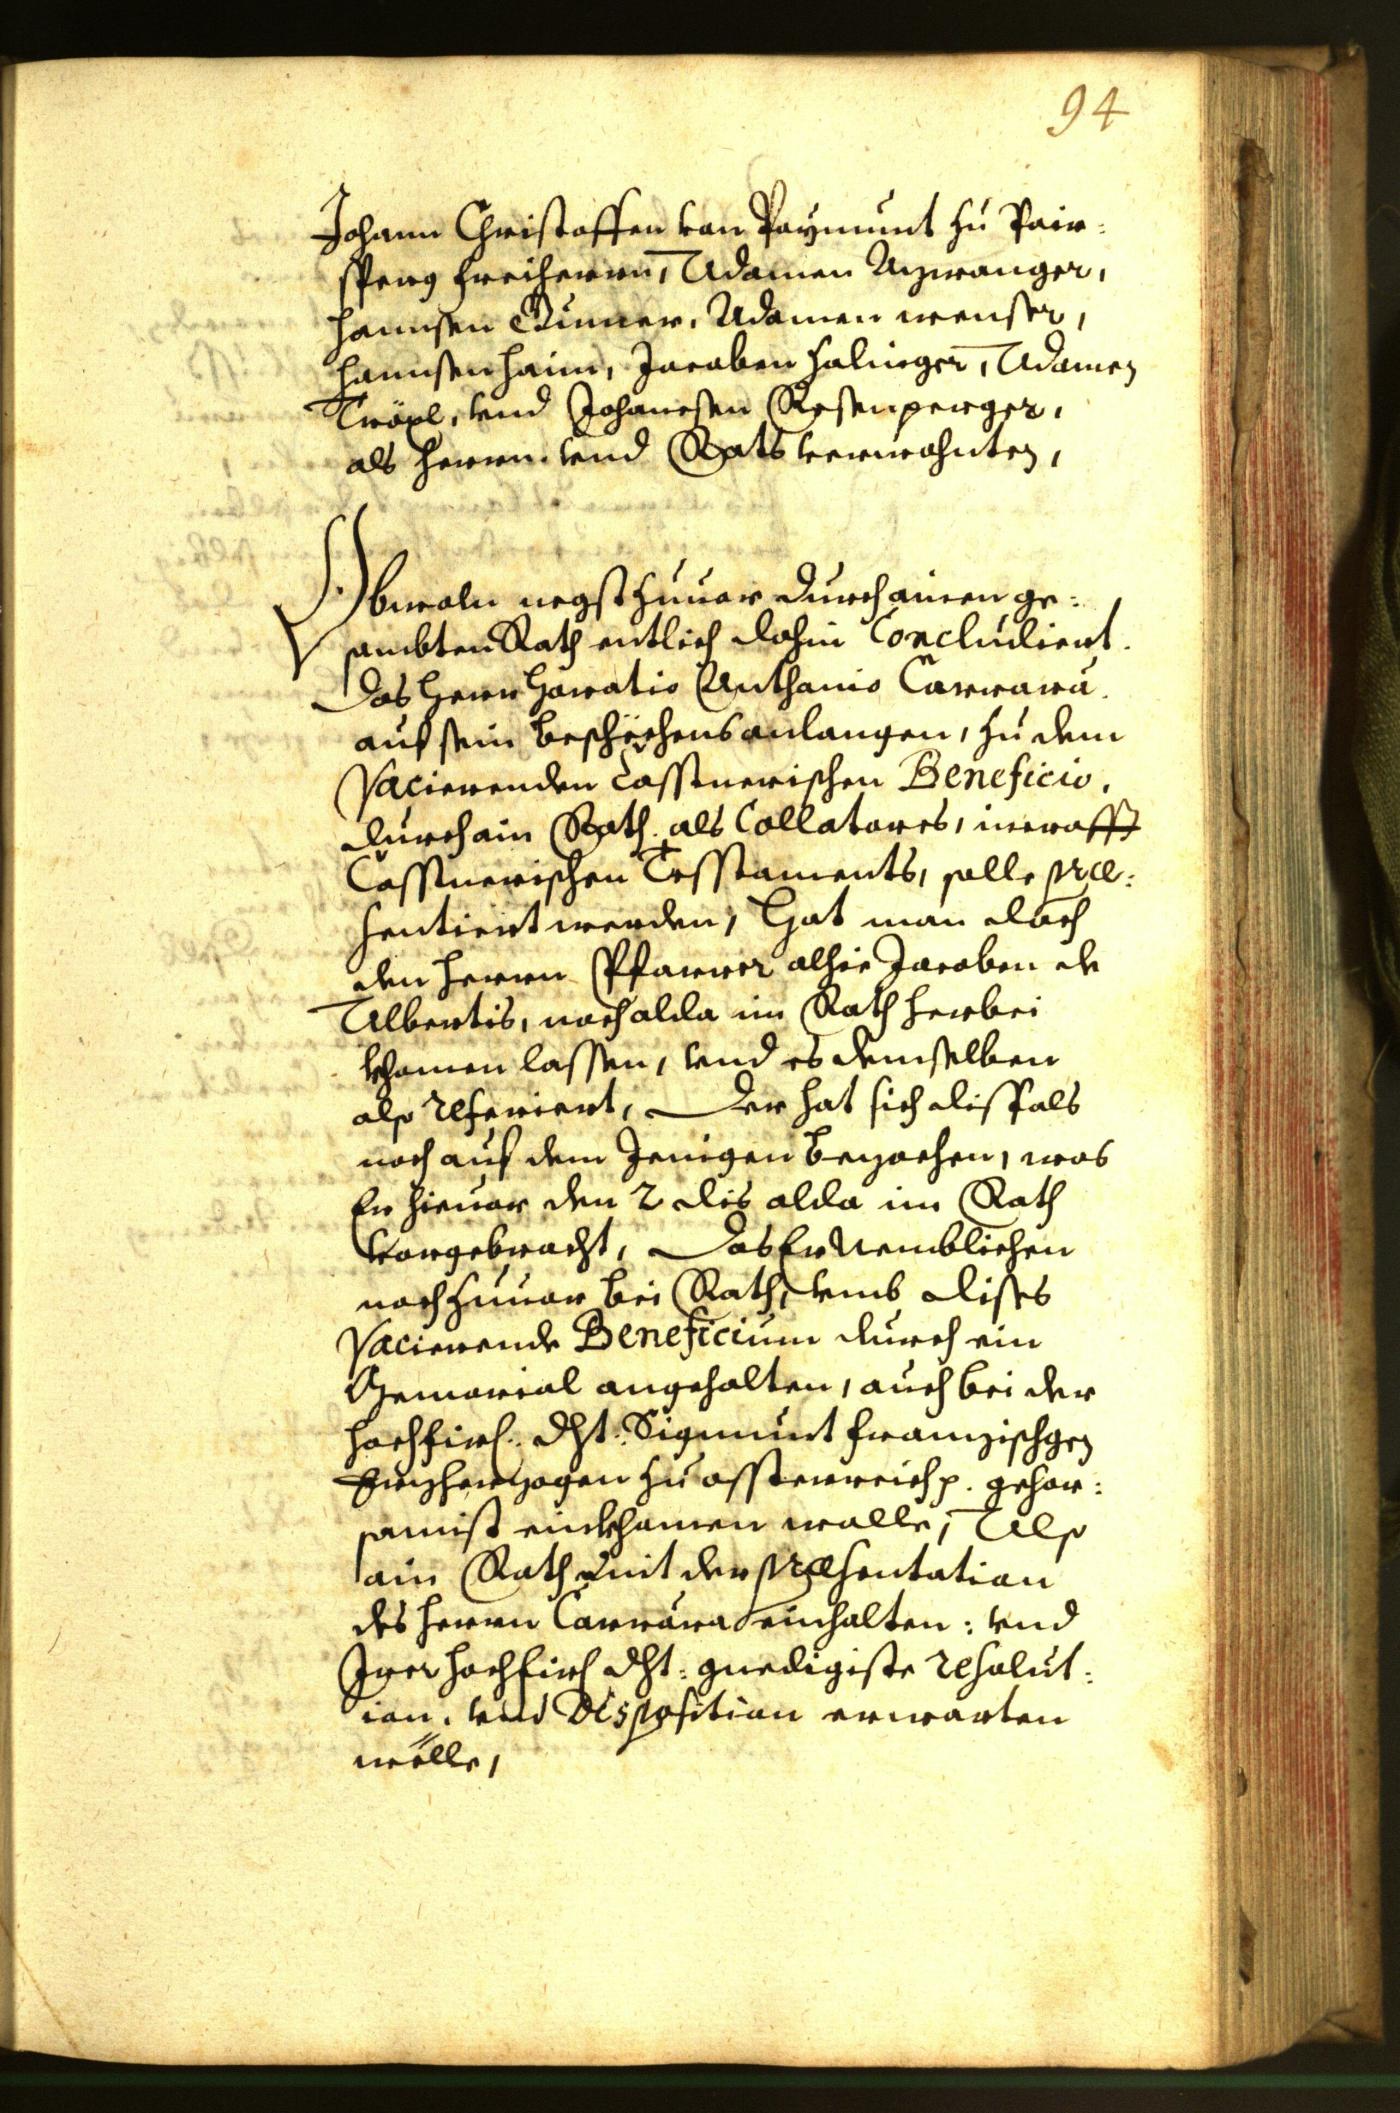 94
Johann Christoffen von Paÿmunt zu Pair:
sperg Freiherrn, Adamen Azwanger,
Hannsen Gumer, Adamen Wenser,
Hannsen Haim, Jacoben Halinger, Adamen
Tröpl, vnd Johannsen Rosenperger,
als Herrn vnd Rats verwohnten,
Obwoln negst zuuor durch ainen ge:
sambten Rath entlich dohin Concludiert.
Das Herr Horatio Anthonio Carrara.
auf sein beschechens anlangen, zu dem
Vacierenden Casstnerischen Beneficio,
durch ain Rath als Collatores, incrafft
Casstnerischen Tesstaments, solle præ:
sentiert werden, Hat man doch
den Herrn Pfarrer alhie Jacoben de
Albertis, noch alda im Rath herbei
khomen lassen, vnd es demselben
also referiert, Der hat sich dissfals
noch auf dem Jenigen bezochen, was
Er hieuor den 2 dis alda im Rath
vorgebracht, Das Er Nemblichen
noch zuuor bei Rath, vmb dises
Vacierende Beneficium durch ein
Memorial angehalten, auch bei der
hochfirl. Dht: Sigmunt Franzischgen
Erzherzogen zu Össterreich p. gehor:
samist einkhomen wolle, Also
ain Rath mit der præsentation
des Herrn Carrara einhalten: vnd
Irer hochfirl Dht: gnedigiste resolut:
ion, vnd Disposition erwarten
wölle,